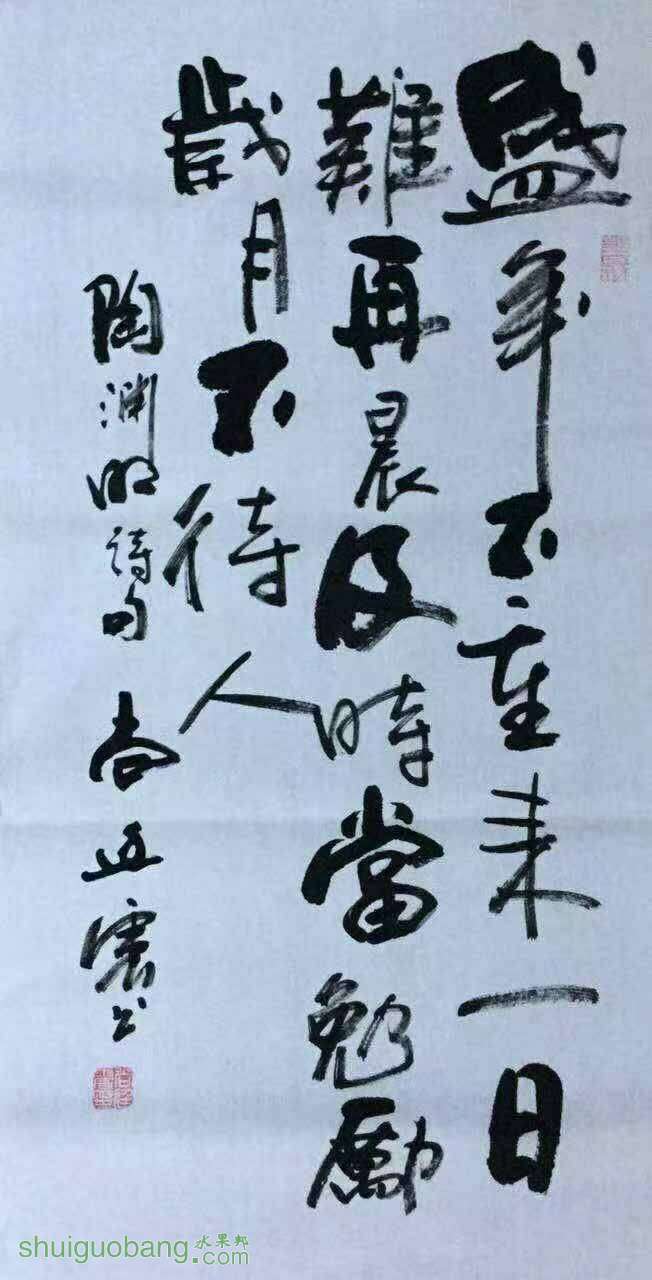 盛年不重来一日
難再晨及時當勉勵
歲月不待人
陶渊明詩句 尚 书
水果邦
shuiguobang.com